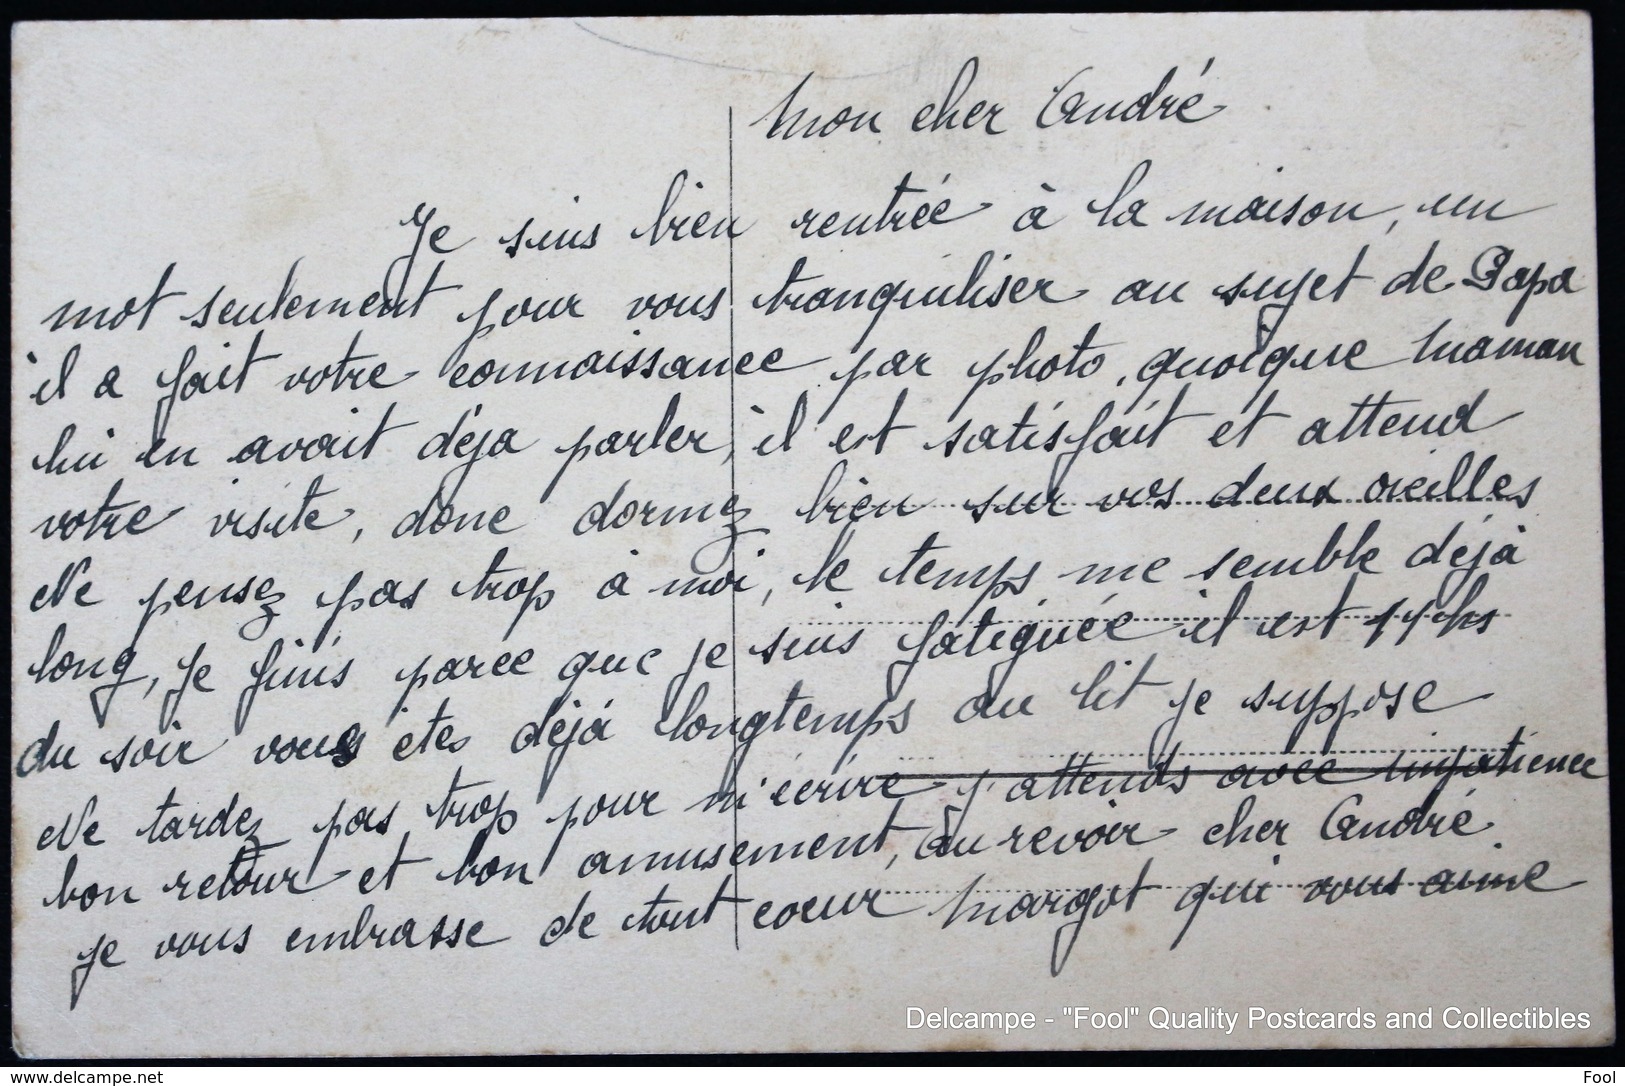 Mon cher André
Je suis bien rentrée à la maison, un
mot seulement pour vous tranquiliser au sujet de Papa
il a fait votre connaissance par photo, quoique Maman
lui en avait déja parler, il est satisfait et attend
votre visite, donc dormez bien sur vos deux oreilles
Ne pensez pas trop à moi, le temps me semble déjà
long, je finis parce que je suis fatiguée il est 11 hs
du soir vous êtes déjà longtemps au lit je suppose
Ne tardez pas trop pour m'écrire j'attends avec impatience
bon retour et bon amusement, au revoir cher André
je vous embrasse de tout coeur Margot qui vous aime
Delcampe - "Fool" Quality Postcards and Collectibles
www.delcampe.net
Fool